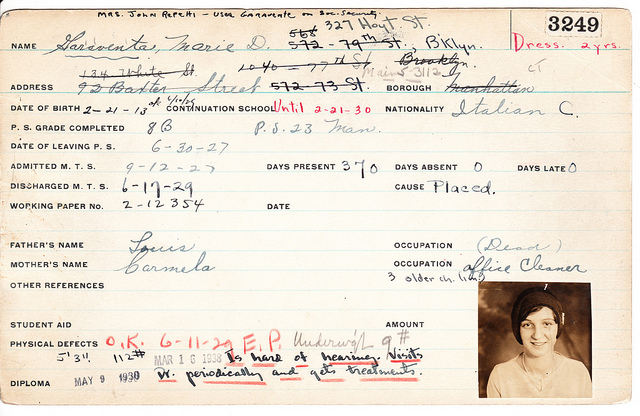 MRS. JOHN REPETTI - USED GARAVENTE on Soc. Security.
568 327 Hoyt St.
3249
NAME Garaventa, Marie D. 572 - 79th St., B'klyn. Dress. 2 yrs.
134 White St. 1040 - 77th St. Brooklyn.
Main 3112 CT
ADDRESS 92 Baxter Street 572-73 St. BOROUGH Manhattan
DATE OF BIRTH 2-21-13 CONTINUATION SCHOOL Until 2-21-30 NATIONALITY Italian C.
P. S. GRADE COMPLETED 8B P.S. 23 Man.
DATE OF LEAVING P. S. 6-30-27
ADMITTED M. T. S. 9-12-27 DAYS PRESENT 370 DAYS ABSENT 0 DAYS LATE 0
DISCHARGED M. T. S. 6-17-29 CAUSE Placed.
WORKING PAPER No. 2-12354 DATE
FATHER'S NAME Louis OCCUPATION (Dead)
MOTHER'S NAME Carmela OCCUPATION office Cleaner
OTHER REFERENCES 3 older ch.
STUDENT AID AMOUNT
PHYSICAL DEFECTS O.K. 6-11-29 E.P. Underw'gt 9#
5' 3" 112# MAR 16 1938 Is hard of hearing. Visits
DIPLOMA MAY 9 1930 Dr. periodically and gets treatments.